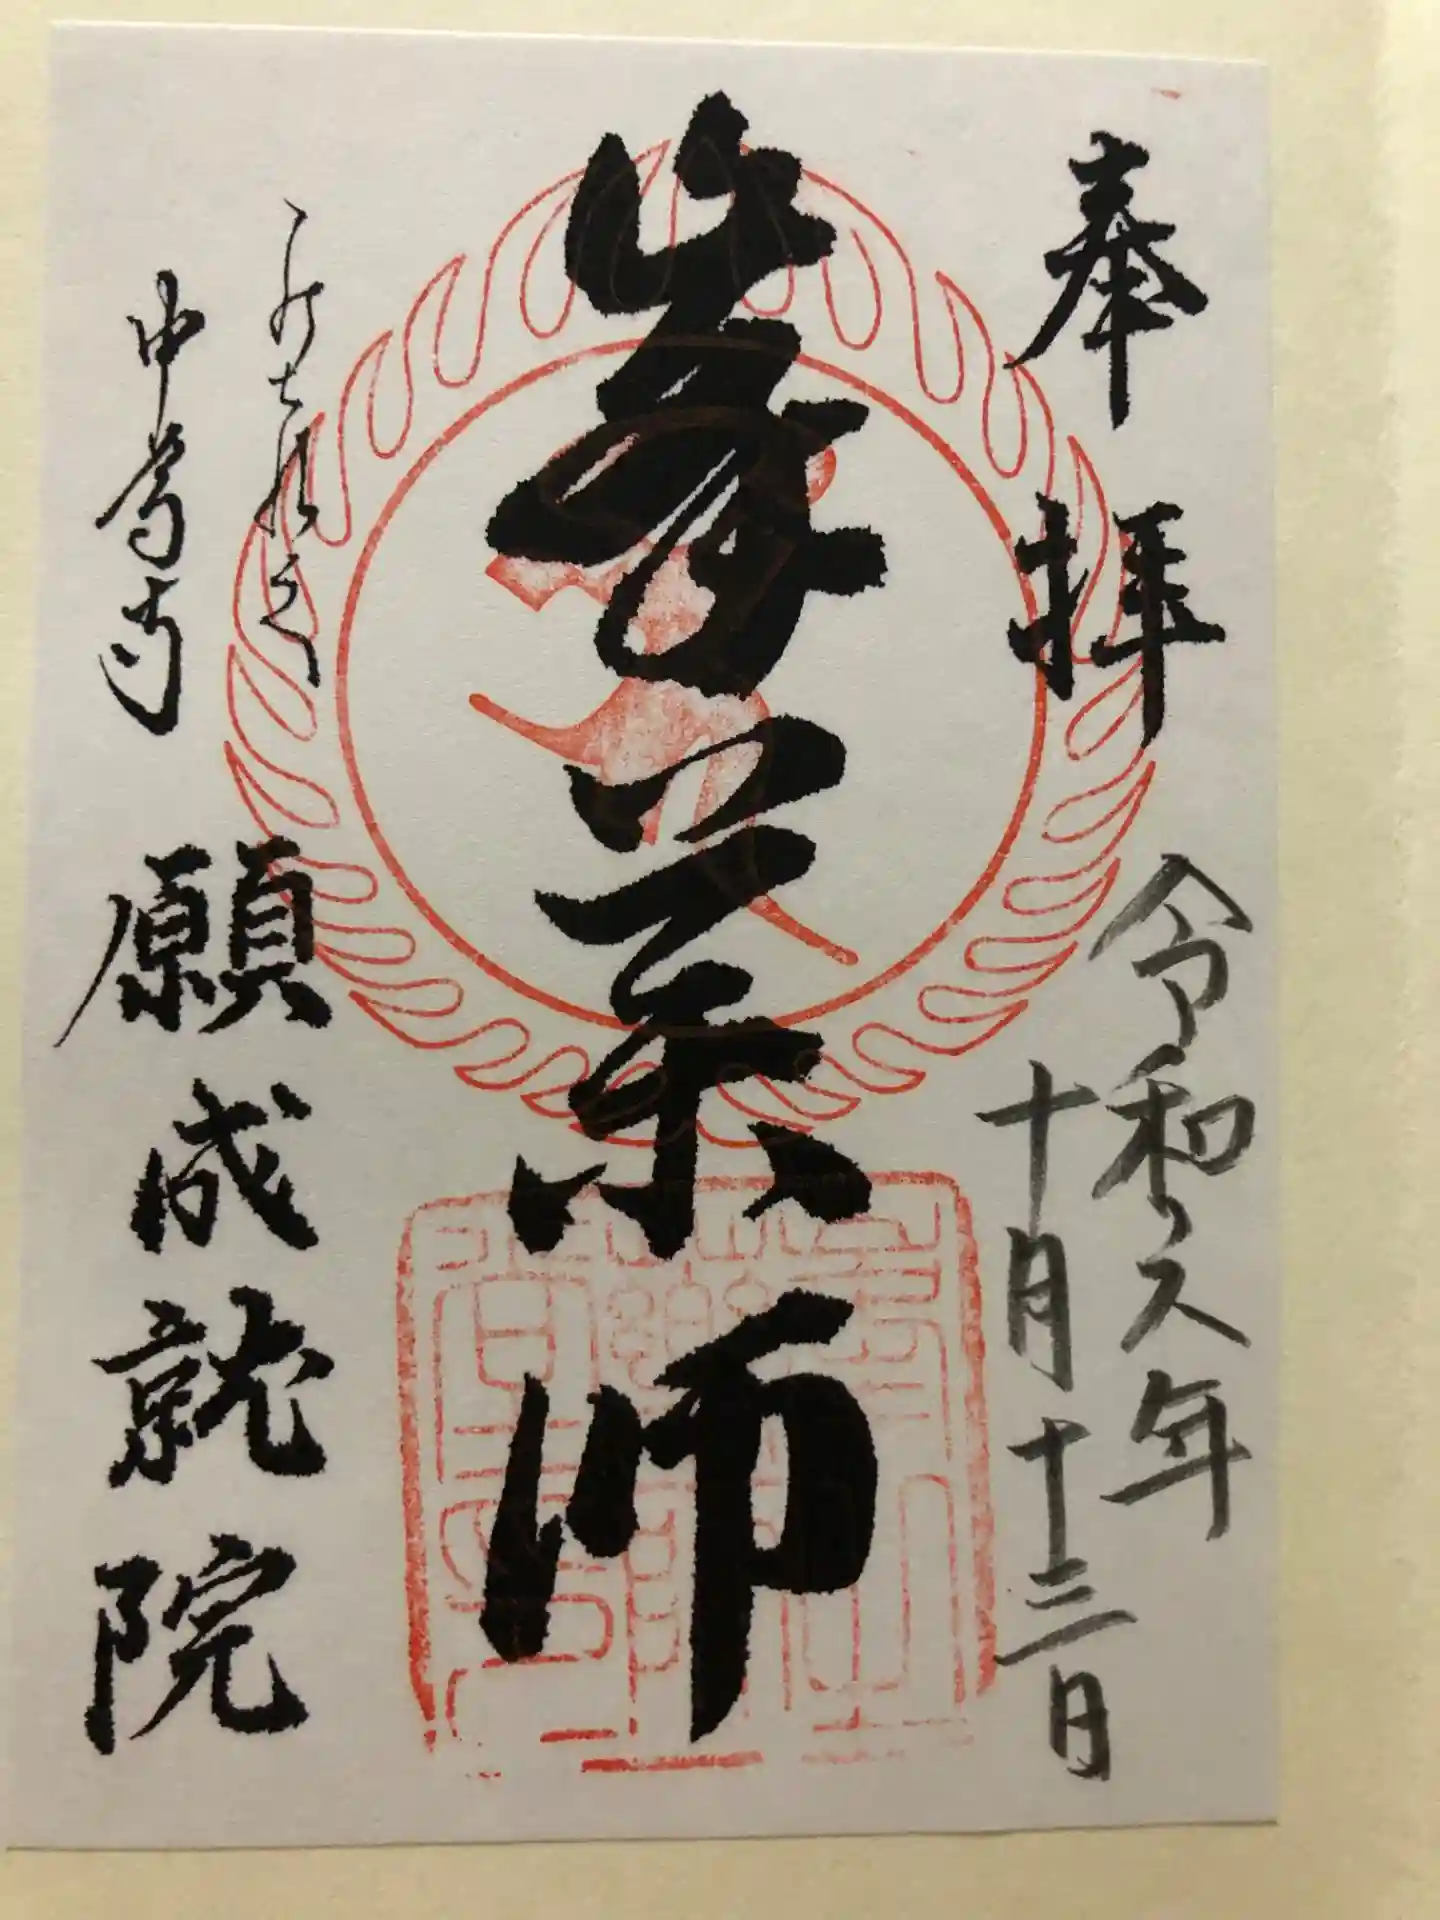 奉拝
令和六年
十月十三日
峯薬師
中尊寺
願成就院